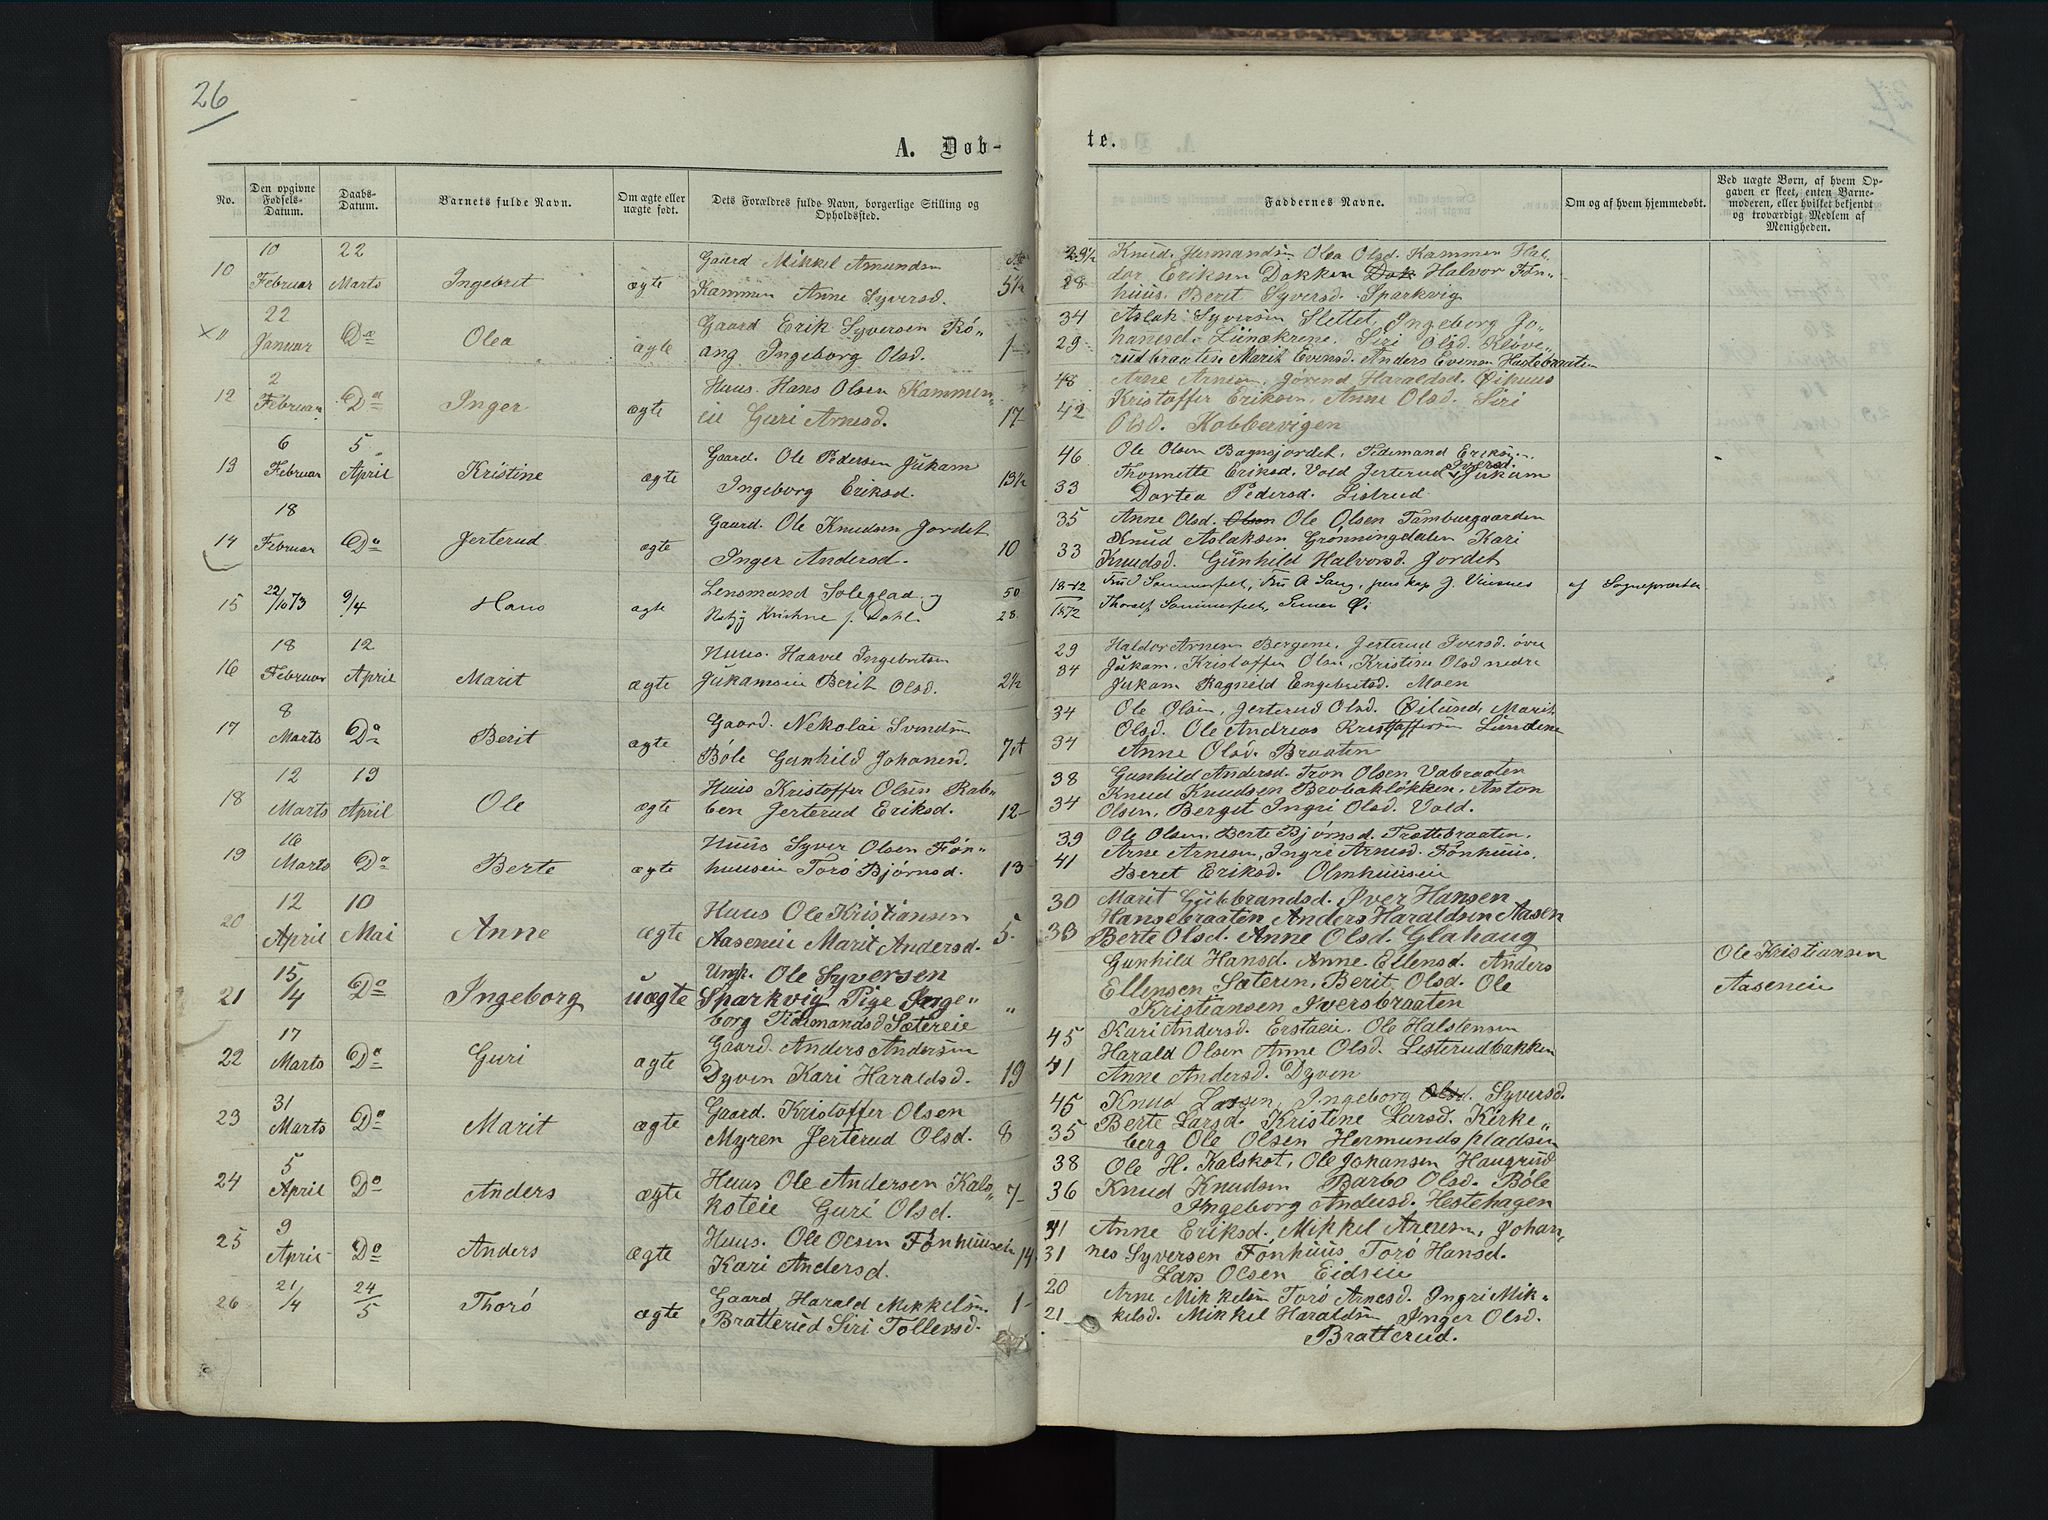 26
A. Døb-
No.
Den opgivne Fødsels-Datum.
Daabs-Datum.
Barnets fulde Navn.
Om ægte eller uægte født.
Dets Forældres fulde Navn, borgerlige Stilling og Opholdssted.
10
10 Februar
22 Marts
Ingebret
ægte
Gaard Mikkel Amundsen
Kammen Anne Syversd.
5½
× "
22 Januar
Do
Olea
ægte
Gaard Erik Syversen Rø„
ang Ingeborg Olsd.
1
12
2 Februar
Do
Inger
ægte
Huus. Hans Olsen Kammen„
eie Guri Arnesd.
17
13
6 Februar
5 April
Kristine
ægte
Gaard. Ole Pedersen Jukam
Ingeborg Eriksd.
13½
14
18 Februar
Do
Jerterud
ægte
Gaard. Ole Knudsen Jordet
Inger Andersd.
10
15
22/10 73
9/4
Hans
ægte
Lensmand Soleglad og
Kristine f. Dahl.
50
28
16
18 Februar
12 April
Marit
ægte
Huus. Haavel Ingebretsen
Jukamseie Berit Olsd.
2½
17
8 Marts
Do
Berit
ægte
Gaard. Nekolai Svendsen
Bøle Gunhild Johanesd.
7
18
12 Marts
19 April
Ole
ægte
Huus Kristoffer Olsen Rab„
ben Jerterud Eriksd.
12
19
16 Marts
Do
Berte
ægte
Huus Syver Olsen Føn„
huuseie Torø Bjørnsd.
13
20
12 April
10 Mai
Anne
ægte
Huus Ole Kristiansen
Aaseneie Marit Andersd.
5
21
15/4
Do
Ingeborg
uægte
Ungk. Ole Syversen
Sparkvig Pige Inge„
borg Tidemandsd Sætereie
"
22
17 Marts
Do
Guri
ægte
Gaard. Anders Andersen
Dyven Kari Haraldsd.
19
23
31 Marts
Do
Marit
ægte
Gaard. Kristoffer Olsen
Myren Jerterud Olsd.
8
24
5 April
Do
Anders
ægte
Huus Ole Andersen Kals„
koteie Guri Olsd.
7
25
9 April
Do
Anders
ægte
Huus. Ole Olsen Fønhuuseie
Kari Andersd.
14
26
21/4
24/5
Thorø
ægte
Gaard Harald Mikkelsen
Bratterud Siri Tollersd.
1
te.
Faddernes Navne.
Om og af hvem hjemmedøbt.
Ved uægte Børn, af hvem Op-
gaven er skeet, enten Barne-
moderen, eller hvilket bekjendt
og troværdigt Medlem af
Menigheden.
29½
28
Olea Olsd. Kammen Hal„
dor Eriksen Dokken Dok Halvor Føn„
huus. Beret Syversd. Sparkvig
34
29
Aslak Syversen Slettet, Ingeborg Jo„
hanesd. Siri Olsd. Kløve„
rudbraaten Marit Evensd. Anders Evensen
48
42
Arne Arnesen, Jørend Haraldsd. Øihuus
Kristoffer Eriksen, Anne Olsd. Siri
Olsd. Kobbervigen
46
33
Ole Olsen Bagnsjordet, Tidemand Eriksen
Thonnette Eriksd. Vold Jerterud Iversd. Jukam
Dortea Pedersd. Listrud
35
33
Anne Olsd. Olsen Ole Olsen Tamburgaarden
Knud Aslaksen Grønningdalen Kari
Knudsd. Gunhild Halvorsd. Jordet
18-12
1872
Fru Sommerfeldt, Fru A Sang,
Thoralf Sommerfeldt,
af Sognepræsten
29
34
Haldor Arnesen Bergene, Jerterud Iversd. øvre
Jukam, Kristoffer Olsen, Kristine Olsd nedre
Jukam Ragnild Engebretsd. Moen
34
34
Ole Olsen, Jerterud Olsd. Øilund, Marit
Olsd. Ole Andreas Kristoffersen Lundene
Anne Olsd. Braaten
38
34
Gunhild Andersd. Tron Olsen Vabraaten
Knud Knudsen Brobakløkken, Anton
Olsen, Berget Ingri Olsd. Vold.
39
41
Ole Olsen, Berte Bjørnsd. Trættebraaten,
Arne Arnesen, Ingri Arnesd. Fønhuus.
Beret Eriksd. Olmhuuseie
30
33
Marit Gulbrandsd. Iver Hansen
Hansebraaten Anders Haraldsen Aasen
Berte Olsd. Anne Olsd. Glahaug
Gunhild Hansd. Anne Ellensd. Anders
Ellensen Sæteren, Berit Olsd. Ole
Kristiansen Iversbraaten
Ole Kristiansen
Aaseneie
45
41
Kari Andersd. Erstaeie. Ole Halstensen
Harald Olsen Anne Olsd. Listerudbakken
Anne Andersd. Dyven
45
35
Knud Larsen, Ingeborg Olsd. Syversd.
Berte Larsd. Kristine Larsd. Kirke„
berg Ole Olsen Hermundspladsen
38
36
Ole H. Kalskot, Ole Johansen Haugrud
Knud Knudsen Barbo Olsd. Bøle
Ingeborg Andersd. Hestehagen
41
31
Anne Eriksd. Mikkel Arnesen, Johan„
nes Syversen Fønhuus, Torø Hansd.
Lars Olsen Eidseie
20
21
Arne Mikkelsen Torø Arnesd. Ingri Mik„
kelsd. Mikkel Haraldsen Inger Olsd.
Bratterud.